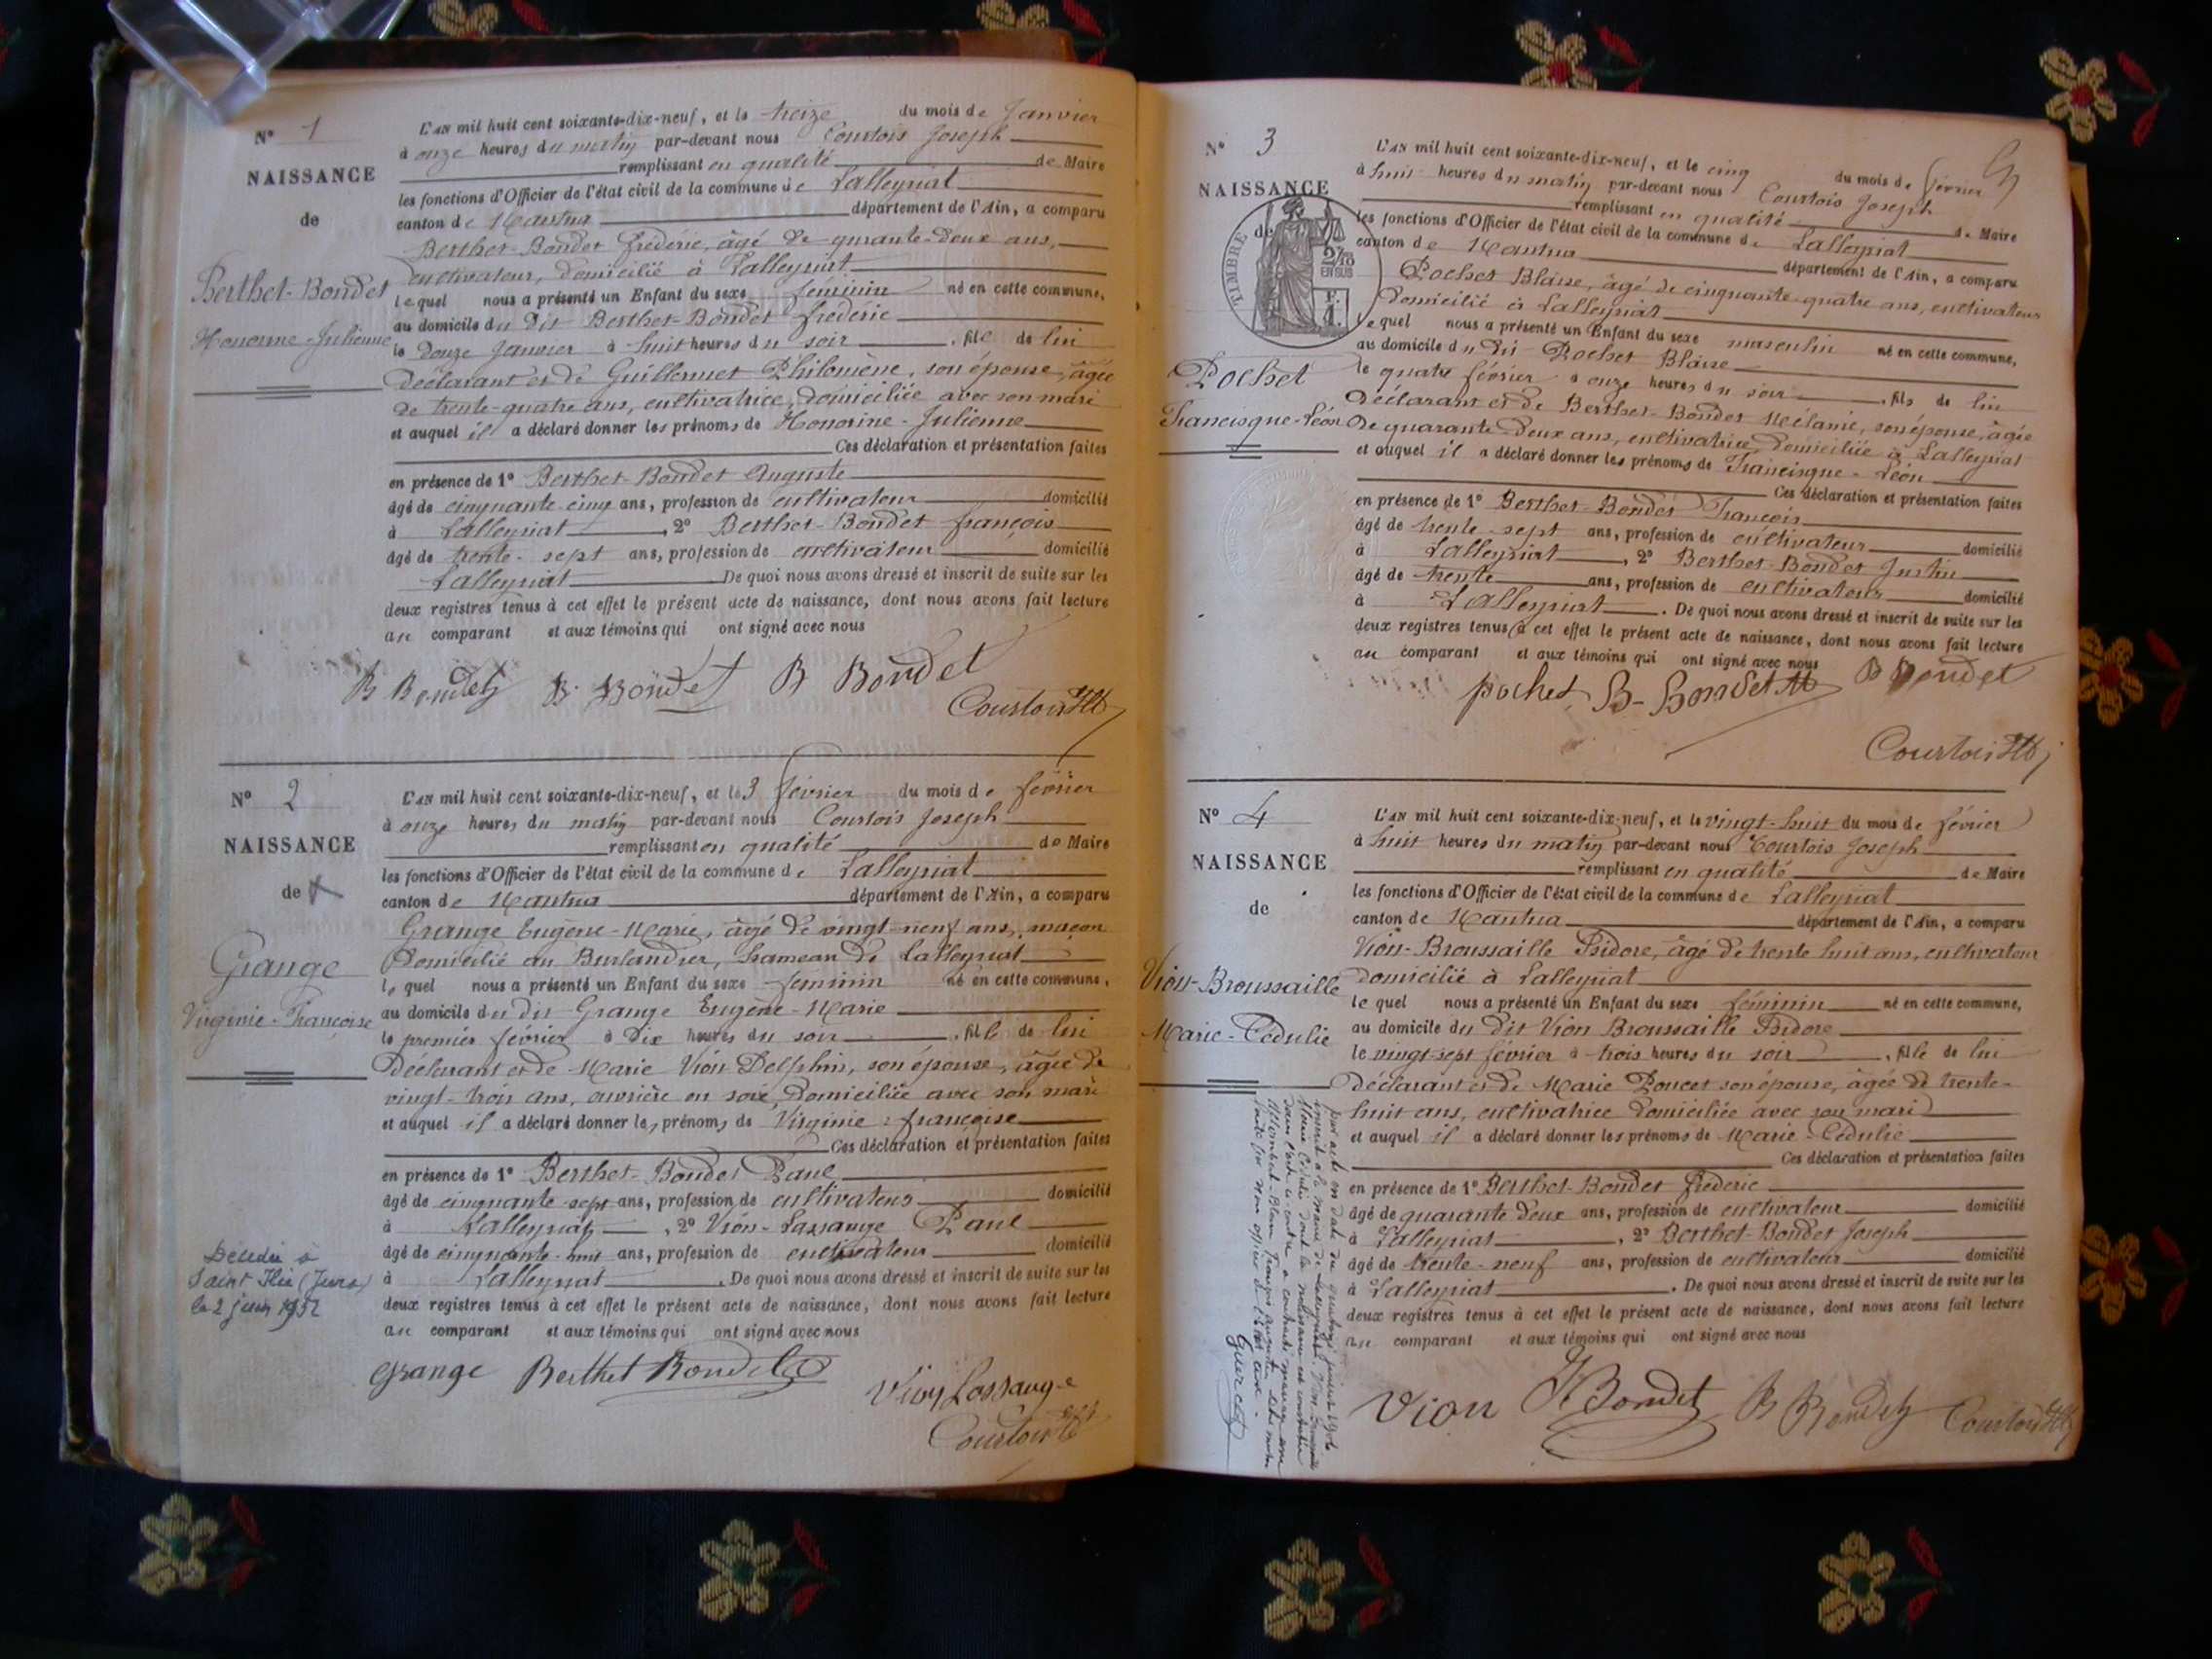 N° 1
NAISSANCE
de
Berthet-Bondet
Honorine-Julienne
L'AN mil huit cent soixante-dix-neuf, et le treize du mois de Janvier
à onze heures du matin par-devant nous Courtois Joseph
remplissant en qualité de Maire
les fonctions d'Officier de l'état civil de la commune de Lalleyriat
canton de Nantua département de l'Ain, a comparu
Berthet-Bondet frédéric, âgé de quarante-deux ans,
cultivateur, domicilié à Lalleyriat
lequel nous a présenté un Enfant du sexe feminin né en cette commune,
au domicile du dit Berthet-Bondet frederic
le douze Janvier à huit heures du soir , fille de lui
Déclarant et de Guillermet Philomène, son épouse, âgée
de trente-quatre ans, cultivatrice, domiciliée avec son mari
et auquel il a déclaré donner les prénoms de Honorine-Julienne
Ces déclaration et présentation faites
en présence de 1° Berthet-Bondet Auguste
âgé de cinquante cinq ans, profession de cultivateur domicilié
à Lalleyriat , 2° Berthet-Bondet françois
âgé de trente-sept ans, profession de cultivateur domicilié
Lalleyriat De quoi nous avons dressé et inscrit de suite sur les
deux registres tenus à cet effet le présent acte de naissance, dont nous avons fait lecture
au comparant et aux témoins qui ont signé avec nous
B Bondet B. Bondet B Bondet
Courtois
N° 2
NAISSANCE
de
Grange
Virginie-Françoise
Décédée à
Saint (Jura)
le 2 juin 1952
L'AN mil huit cent soixante-dix-neuf, et le 3 février du mois de février
à onze heures du matin par-devant nous Courtois Joseph
remplissant en qualité de Maire
les fonctions d'Officier de l'état civil de la commune de Lalleyriat
canton de Nantua département de l'Ain, a comparu
Grange Eugène-Marie, âgé de vingt-neuf ans, maçon
Domicilié au Burlandier, hameau de Lalleyriat
lequel nous a présenté un Enfant du sexe feminin né en cette commune,
au domicile du dit Grange Eugène-Marie
le premier février à Dix heures du soir , fille de lui
Déclarant et de Marie Vion Delphin, son épouse, âgée de
vingt-trois ans, ouvrière en soie, Domiciliée avec son mari
et auquel il a déclaré donner les prénoms de Virginie-françoise
Ces déclaration et présentation faites
en présence de 1° Berthet-Bondet Paul
âgé de cinquante-sept ans, profession de cultivateur domicilié
à Lalleyriat , 2° Vion-Lassauge Paul
âgé de cinquante ans, profession de cultivateur domicilié
à Lalleyriat . De quoi nous avons dressé et inscrit de suite sur les
deux registres tenus à cet effet le présent acte de naissance, dont nous avons fait lecture
au comparant et aux témoins qui ont signé avec nous
grange Berthet Bondet Vion Lassauge
Courtois
N° 3
NAISSANCE
de
TIMBRE
2/10
EN SUS
F.
1.
Pochet
Francisque-Léon
L'AN mil huit cent soixante-dix-neuf, et le cinq du mois de février
à huit heures du matin par-devant nous Courtois Joseph
remplissant en qualité de Maire
les fonctions d'Officier de l'état civil de la commune de Lalleyriat
canton de Nantua département de l'Ain, a comparu
Pochet Blaise, âgé de cinquante-quatre ans, cultivateur
domicilié à Lalleyriat
lequel nous a présenté un Enfant du sexe masculin né en cette commune,
au domicile du dit Pochet Blaise
le quatre février à onze heures du soir , fils de lui
Déclarant et de Berthet-Bondet Mélanie, son épouse, âgée
de quarante-deux ans, cultivatrice, domiciliée à Lalleyriat
et auquel il a déclaré donner les prénoms de Francisque-Léon
Ces déclaration et présentation faites
en présence de 1° Berthet-Bondet François
âgé de trente-sept ans, profession de cultivateur domicilié
à Lalleyriat , 2° Berthet-Bondet Justin
âgé de trente ans, profession de cultivateur domicilié
à Lalleyriat . De quoi nous avons dressé et inscrit de suite sur les
deux registres tenus à cet effet le présent acte de naissance, dont nous avons fait lecture
au comparant et aux témoins qui ont signé avec nous
pochet B-Bondet B Bondet
Courtois
N° 4
NAISSANCE
de
Vion-Broussaille
Marie-Cédulie
L'AN mil huit cent soixante-dix-neuf, et le vingt-huit du mois de février
à huit heures du matin par-devant nous Courtois Joseph
remplissant en qualité de Maire
les fonctions d'Officier de l'état civil de la commune de Lalleyriat
canton de Nantua département de l'Ain, a comparu
Vion-Broussaille Isidore, âgé de trente huit ans, cultivateur
domicilié à Lalleyriat
lequel nous a présenté un Enfant du sexe féminin né en cette commune,
au domicile du dit Vion Broussaille Isidore
le vingt-sept février à trois heures du soir , fille de lui
Déclarant et de Marie Poncet son épouse, âgée de trente-
huit ans, cultivatrice domiciliée avec son mari
et auquel il a déclaré donner les prénoms de Marie-Cédulie
Ces déclaration et présentation faites
en présence de 1° Berthet-Bondet frederic
âgé de quarante deux ans, profession de cultivateur domicilié
à Lalleyriat , 2° Berthet-Bondet Joseph
âgé de trente-neuf ans, profession de cultivateur domicilié
à Lalleyriat . De quoi nous avons dressé et inscrit de suite sur les
deux registres tenus à cet effet le présent acte de naissance, dont nous avons fait lecture
au comparant et aux témoins qui ont signé avec nous
Vion Bondet B Bondet Courtois
par acte en date du
inscrit à la mairie de Lalleyriat, Vion Broussaille
Marie Cédulie dont la naissance est constatée
dans l'acte ci-contre a contracté mariage avec
François